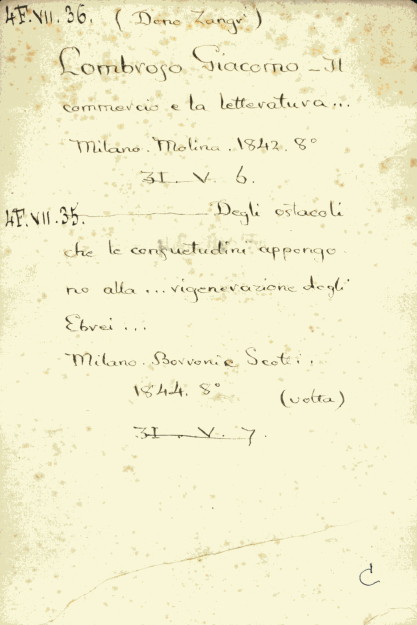 4F.VII.36. (Dono Zangr')
Lombroso Giacomo - Il
commercio e la letteratura...
Milano. Molina. 1842. 8°
31. V. 6.
4F.VII.35. ——— Degli ostacoli
che le consuetudini appongo
no alla ... rigenerazione degli
Ebrei ...
Milano. Borroni e Scotti.
1844. 8°
(volta)
31. V. 7.
C